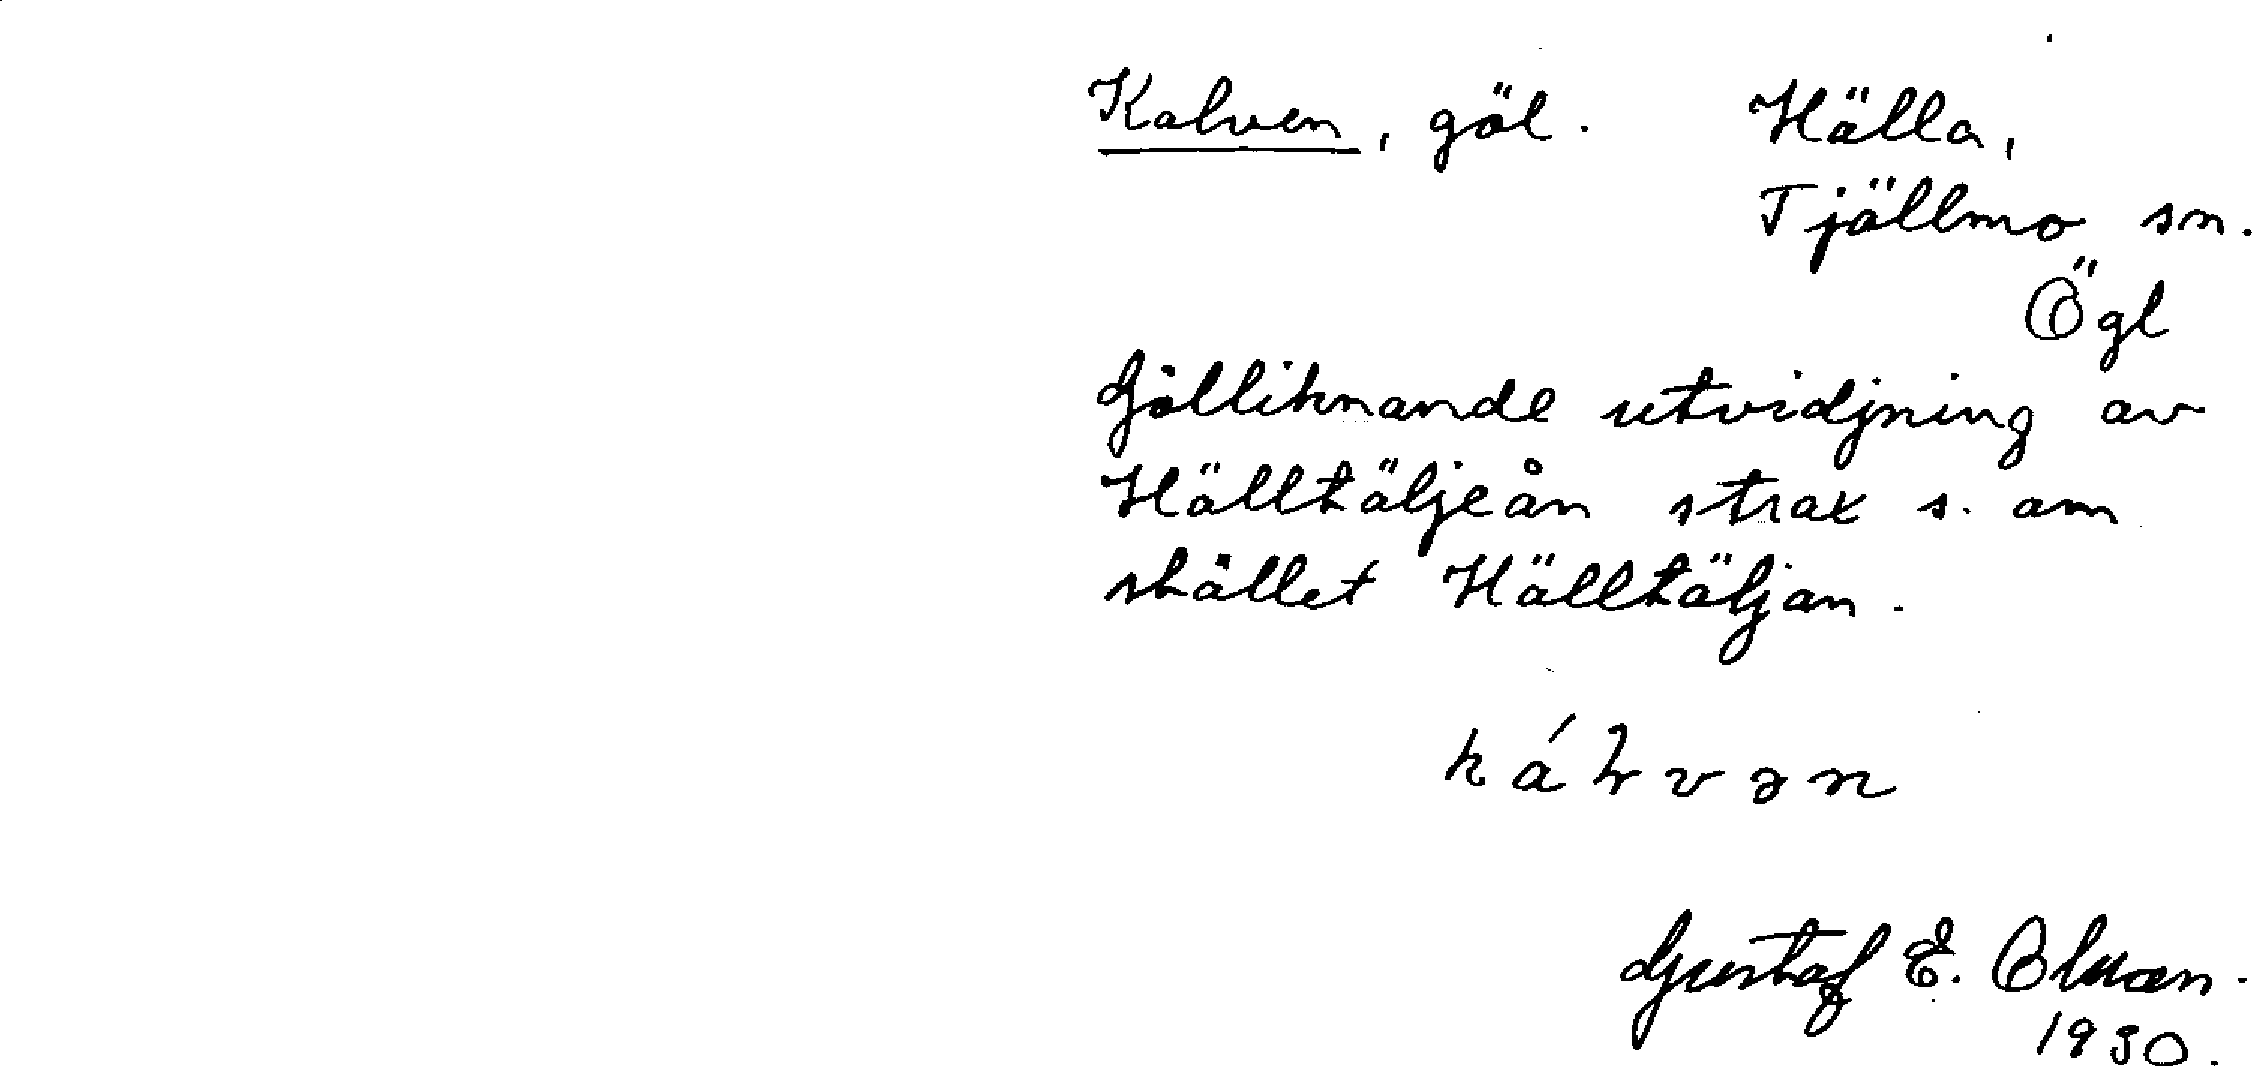 Kalven, göl. Hälla,
Tjällmo sn.
Ögl
Gölliknande utvidjning av
Hälltäljeån strax s. om
stället Hälltäljan.
kálvən
Gustaf E. Olsson.
1930.